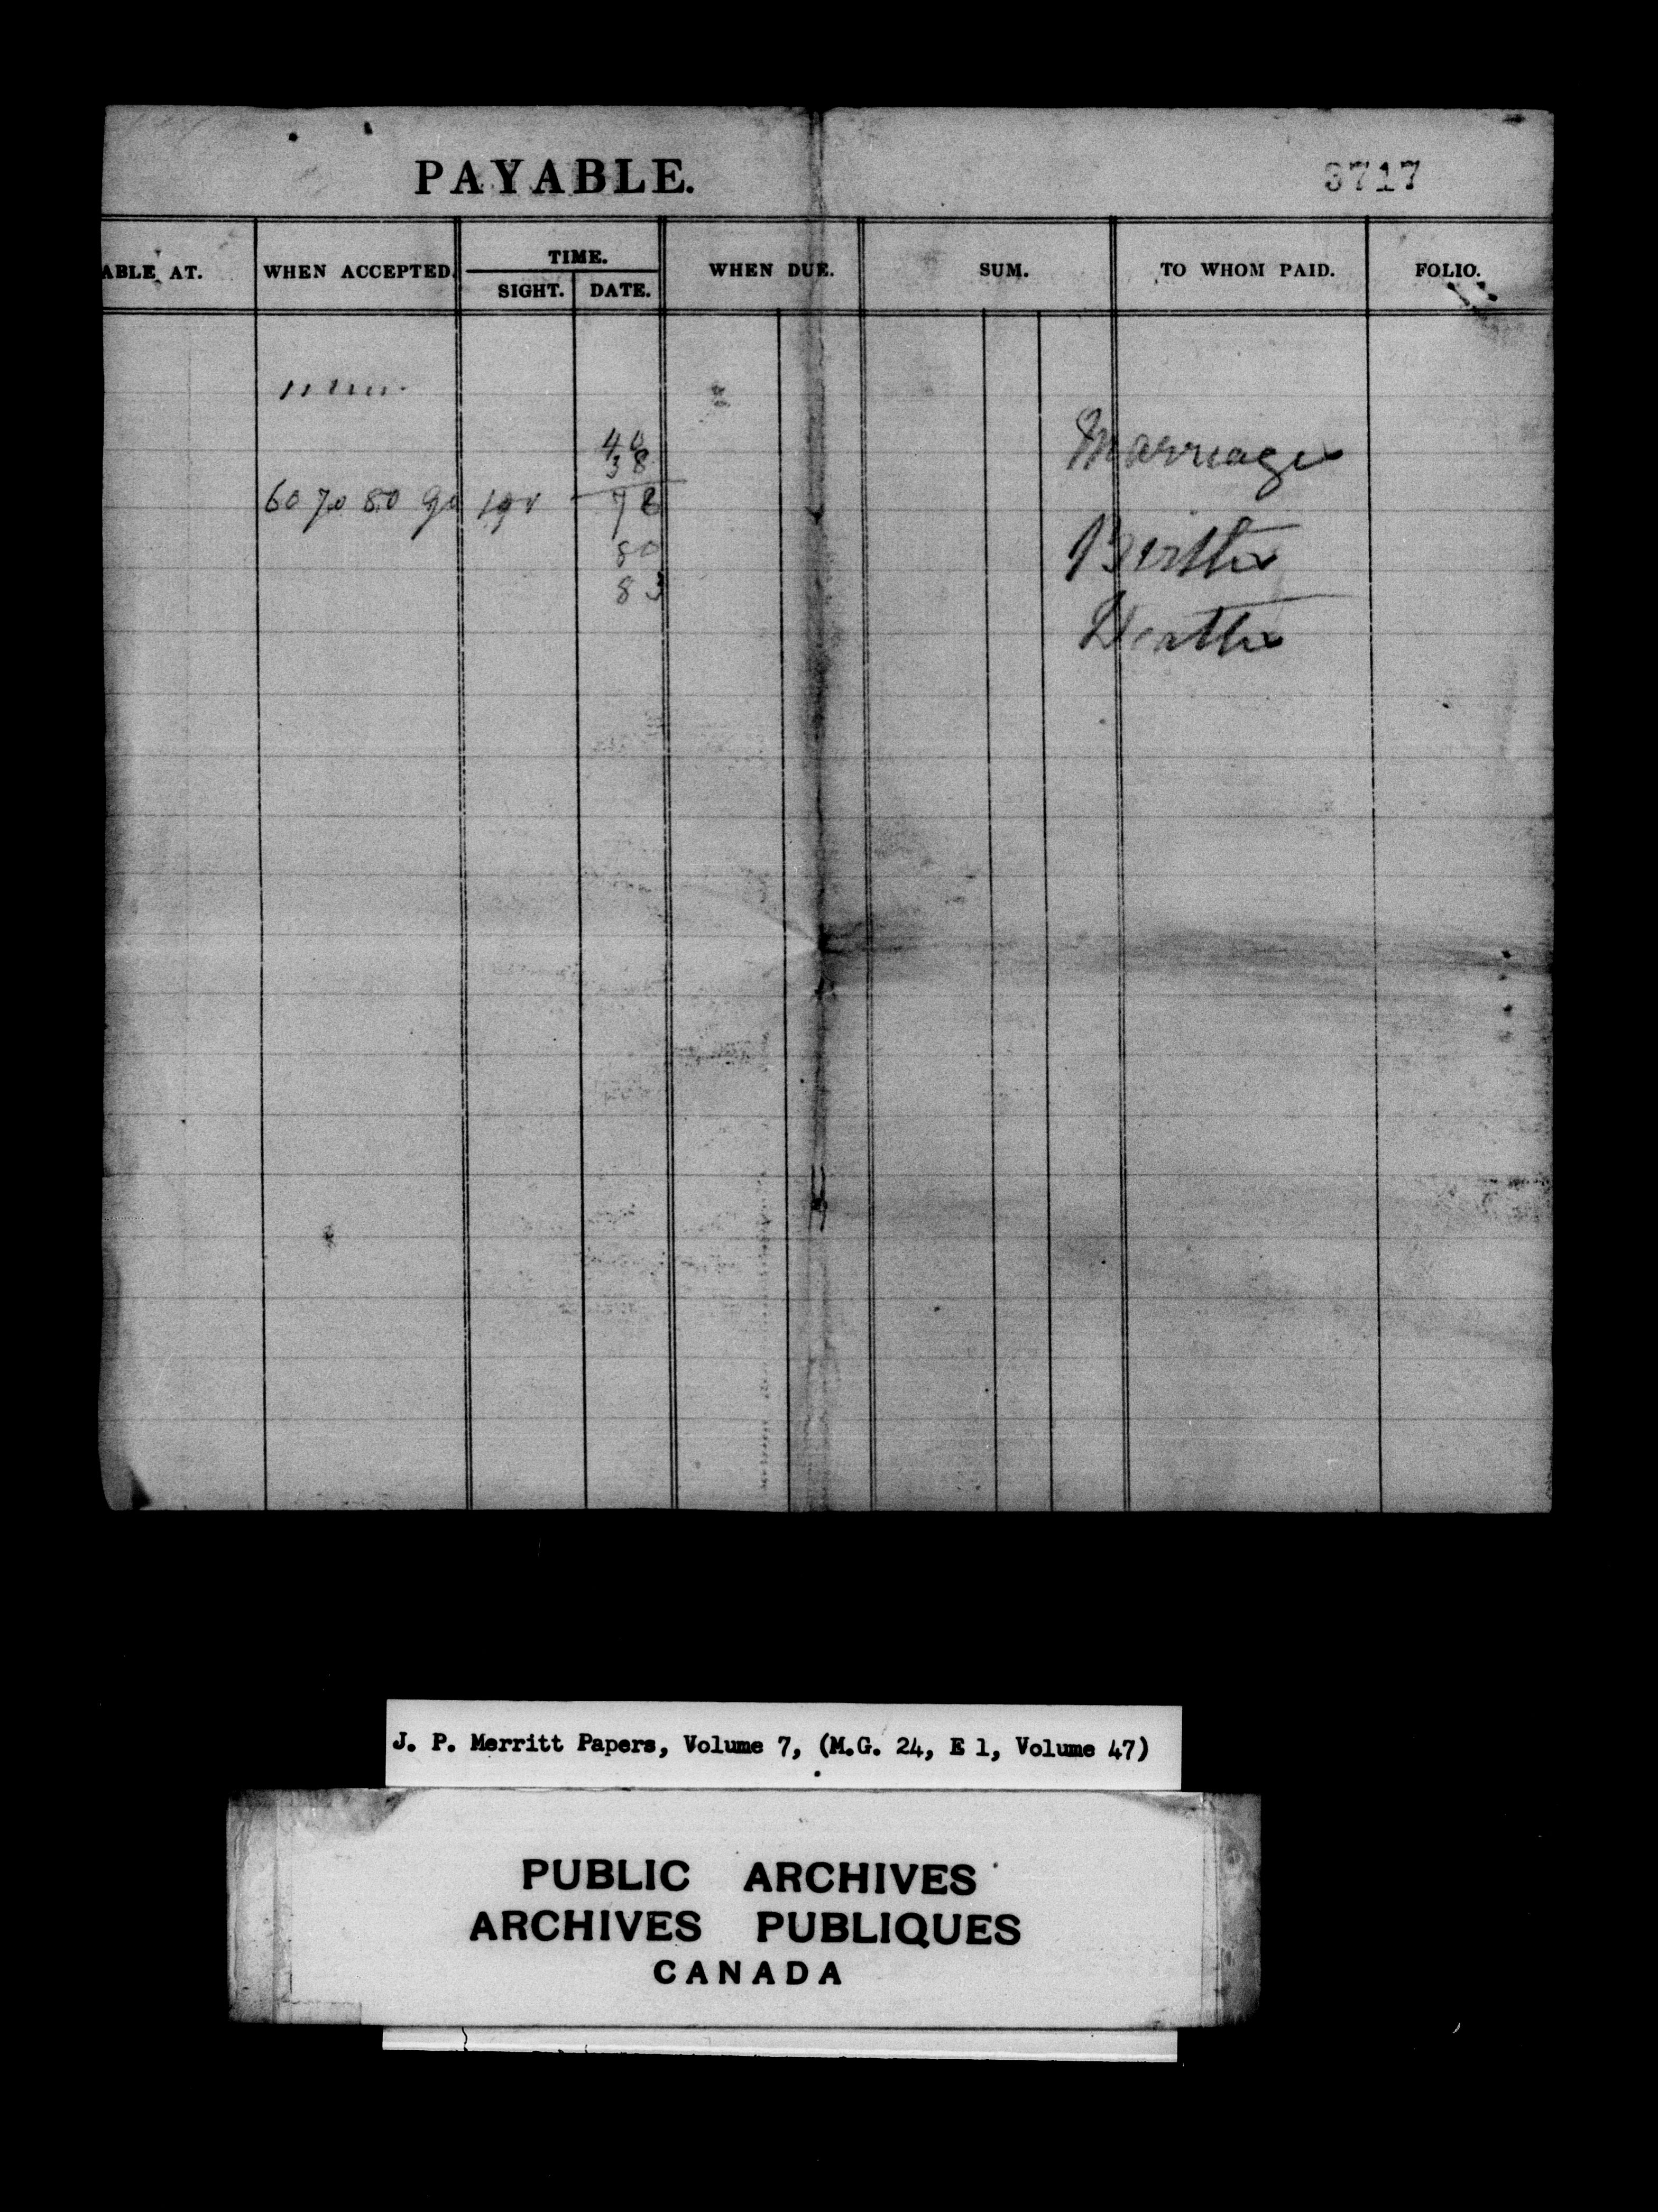 PAYABLE.
3717
ABLE AT.
WHEN ACCEPTED.
TIME.
SIGHT.
DATE.
WHEN DUE.
SUM.
TO WHOM PAID.
FOLIO.
40
38
78
80
83
60 70 80 90
Marriages
Births
Deaths
J. P. Merritt Papers, Volume 7, (M.G. 24, E 1, Volume 47)
PUBLIC ARCHIVES
ARCHIVES PUBLIQUES
CANADA